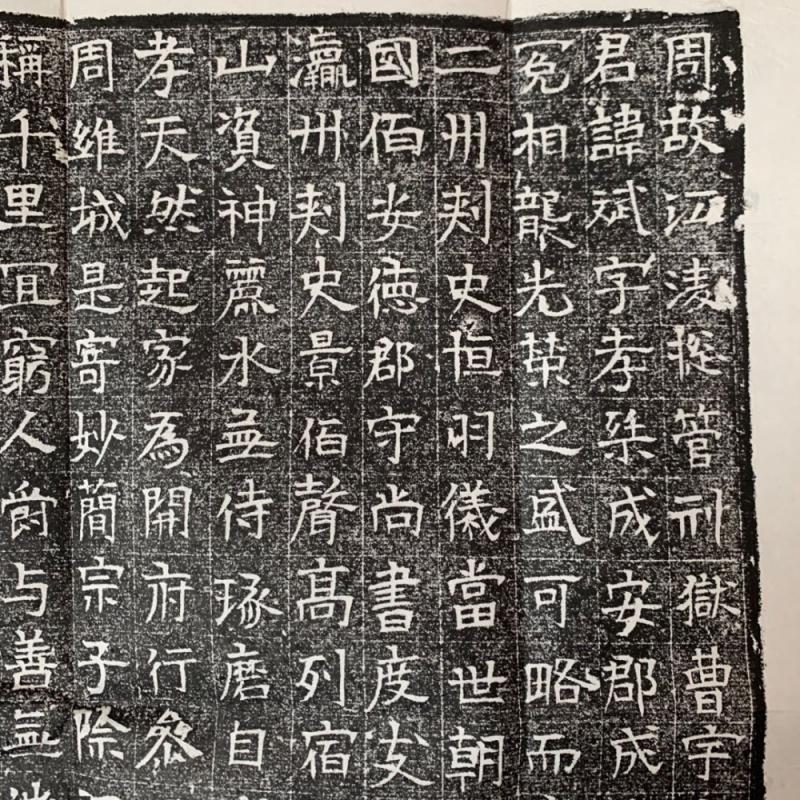 周故江淩揔管刑獄曹宇
君諱斌字孝桀成安郡成
冕相襲光榮之盛可略而
二州刾史恒明儀當世朝
國伯安德郡守尚書度支
瀛州刾史景伯聲高列宿
山資神麗水無侍琢磨自
孝天然起家為開府行參
周維城是寄妙簡宗子除
稱千里冝窮人爵与善